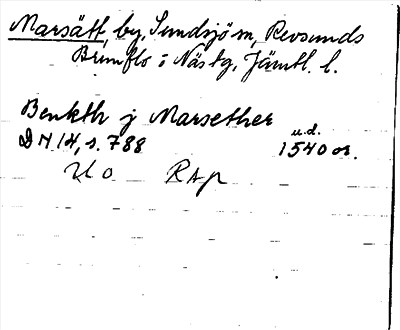 Marsätt, by, Sundsjö sn, Revsunds
Brunflo i Nästg, Jämtl. l.
Benkth j Marsether
u.d.
DN 14, s. 788 1540 or.
U O RAp